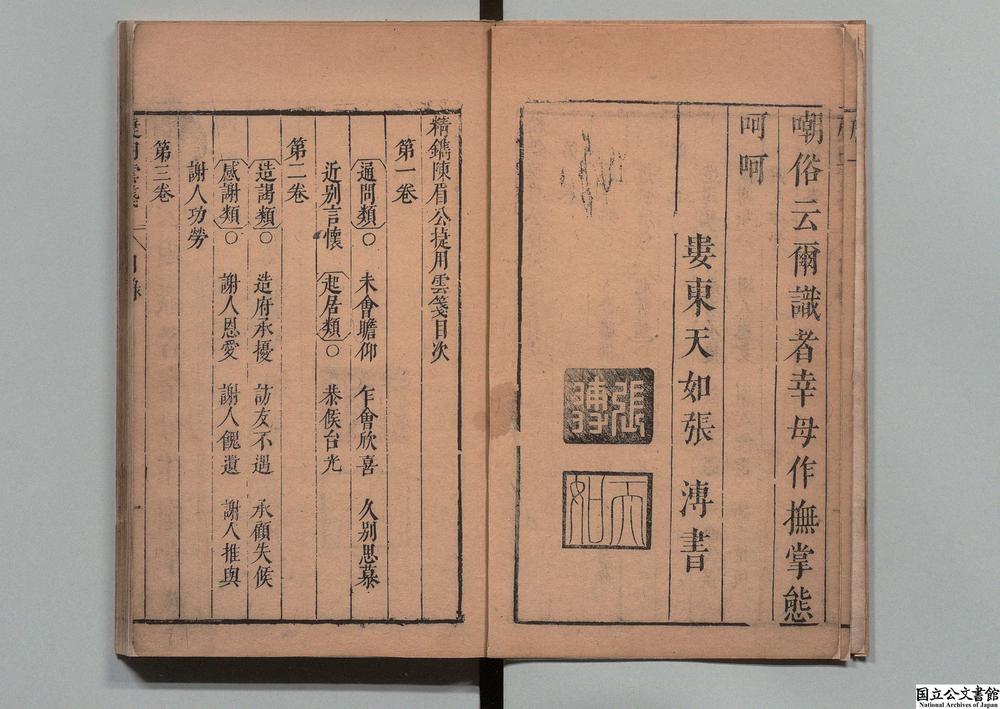 嘲俗云爾識者幸毋作撫掌態
呵呵
婁東天如張 溥書
張溥
天如
精鐫陳眉公捷用雲箋目次
第一卷
通問類○ 未會瞻仰 乍會欣喜 久別思慕
近別言懷 起居類○ 恭候台光
第二卷
造謁類○ 造府承擾 訪友不遇 承顧失候
感謝類○ 謝人恩愛 謝人餽遺 謝人推與
謝人功勞
第三卷
国立公文書館
National Archives of Japan